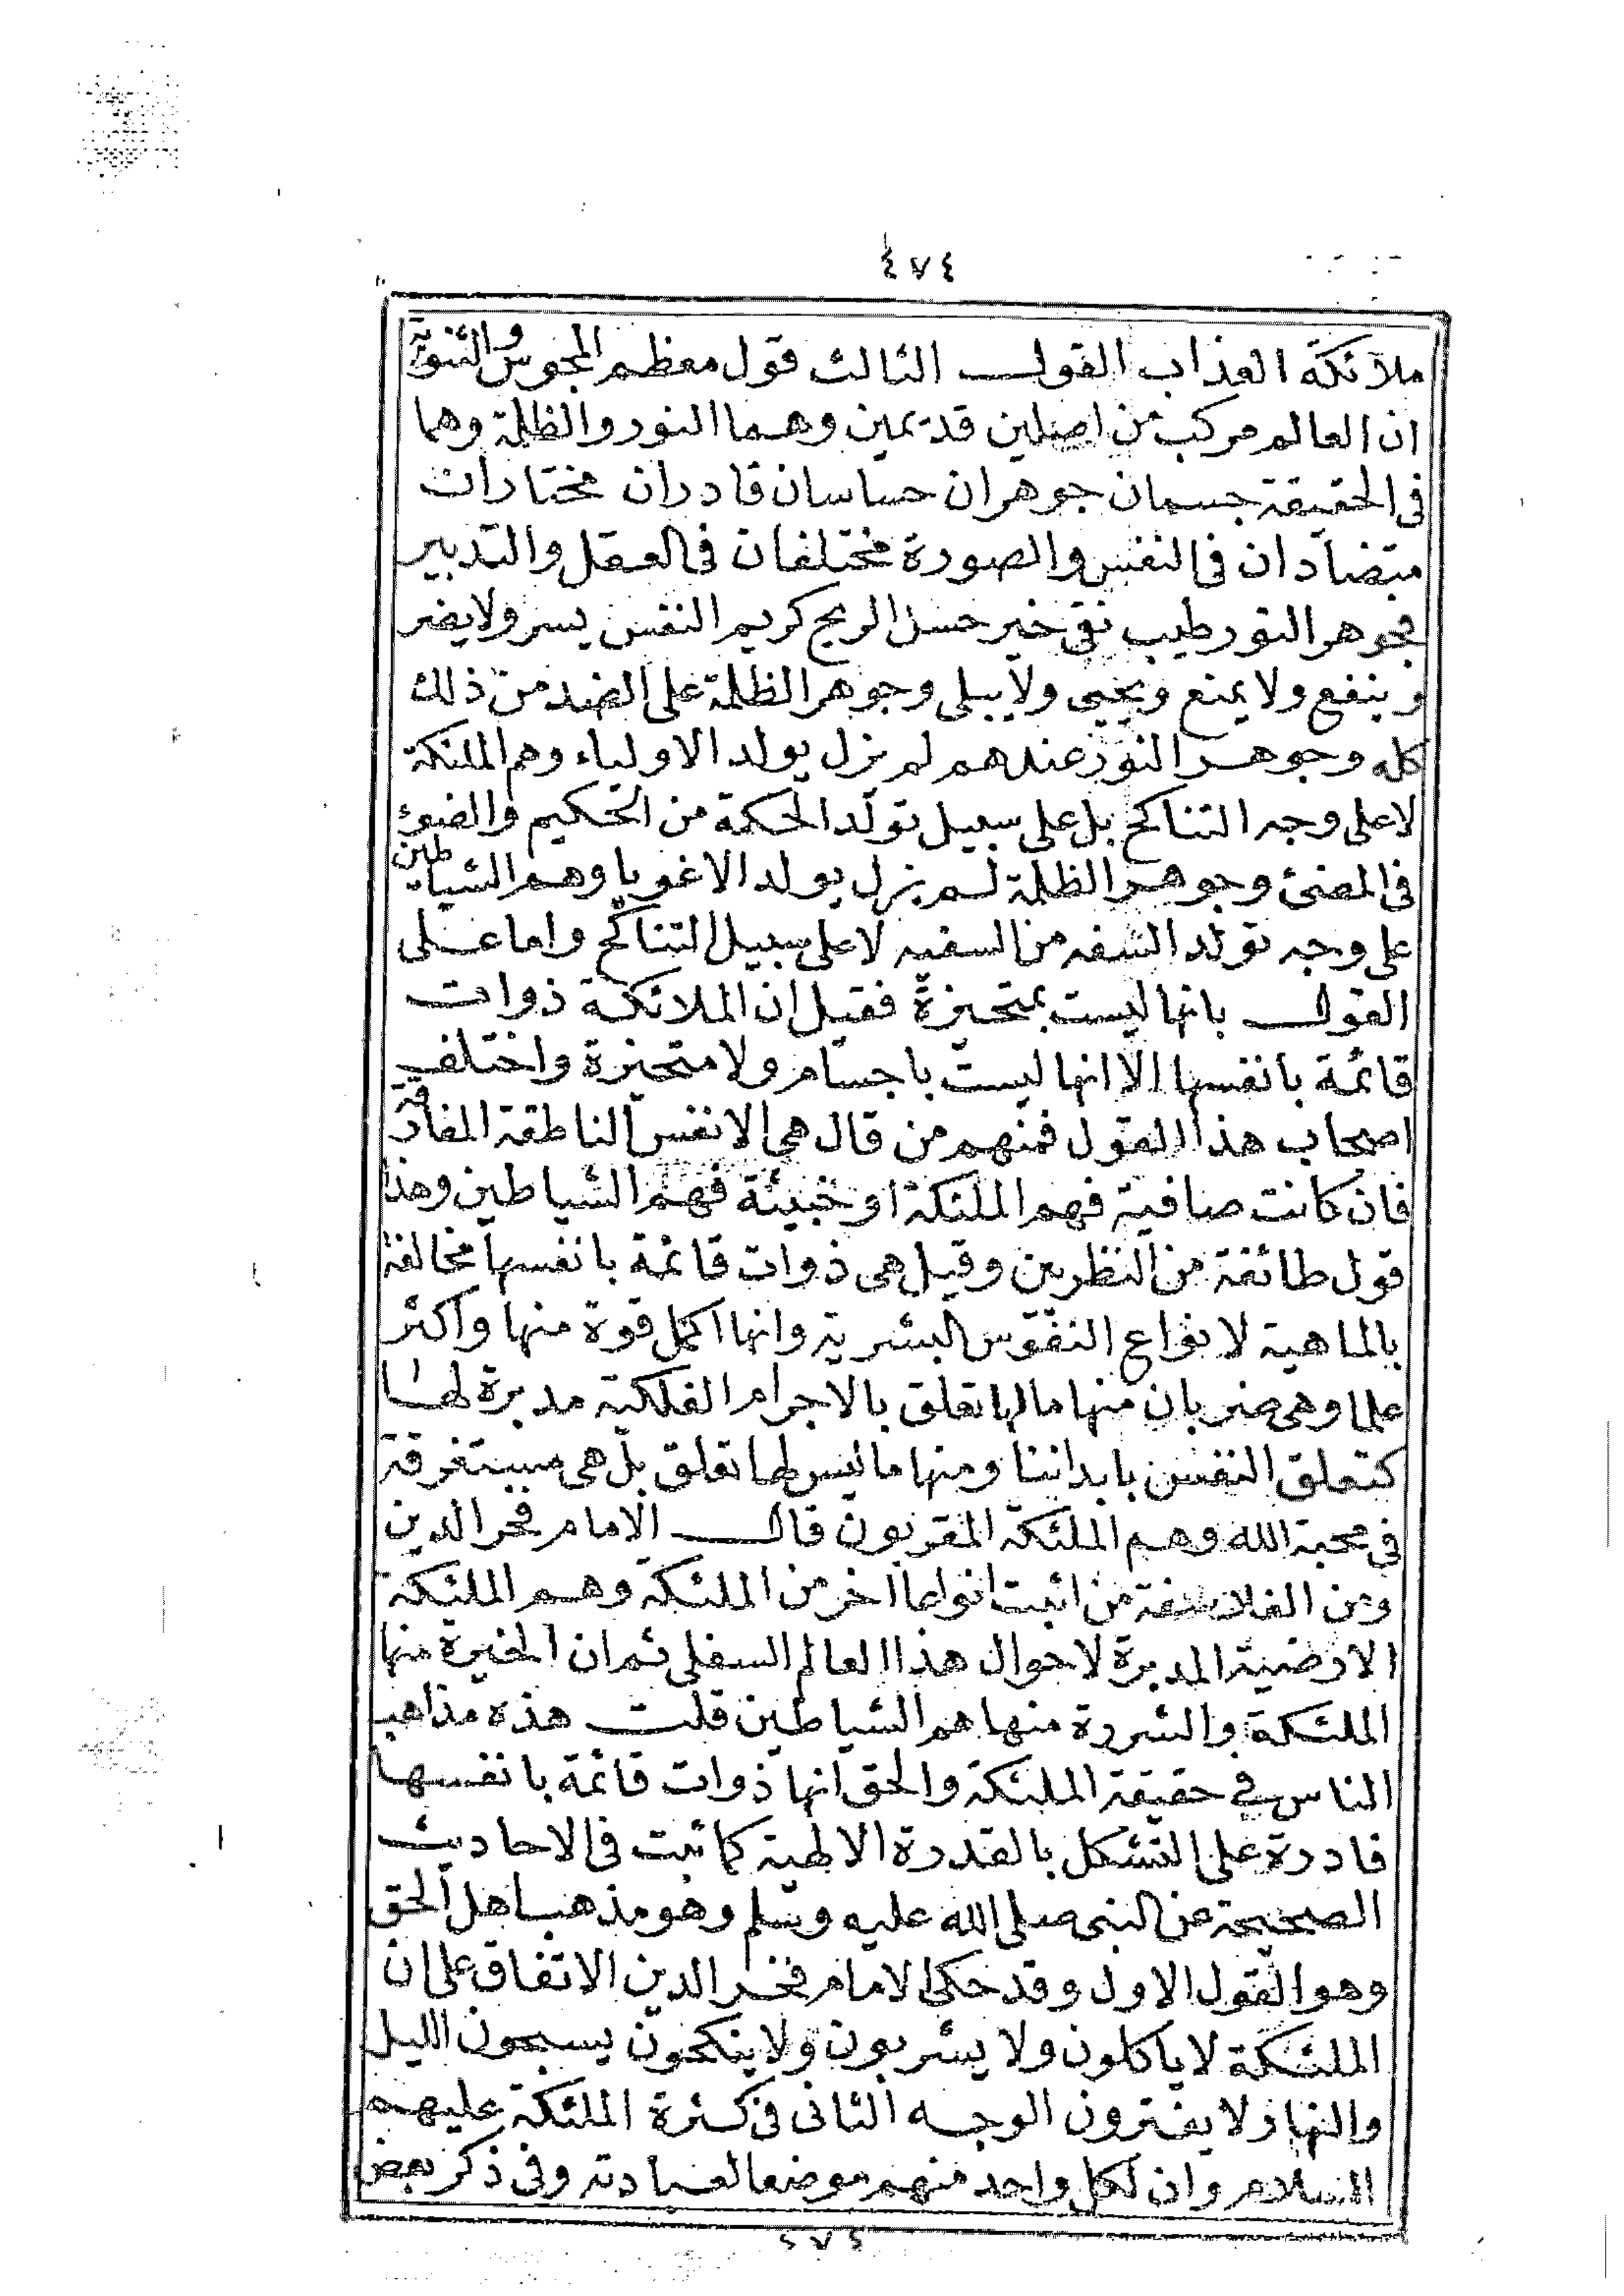 ٤٧٤
ملآئكة العذاب القول الثالث قول معظم المجوس والثنوية
ان العالم مركب من اصلين قديمين وهما النور والظلمة وهما
فى الحقيقة جسمان جوهران حساسان قادران مختاران
متضادان فى النفس والصورة مختلفان فى العقل والتدبير
فجوهر النور طيب نقى خير حسن الريح كريم النفس يسر ولا يضر
وينفع ولا يمنع ويحيى ولا يبلى وجوهر الظلمة على الضد من ذلك
كله وجوهر النور عندهم لم يزل يولد الاولياء وهم الملئكة
لا على وجه التناكح بل على سبيل تولد الحكمة من الحكيم والضوئ
فى المضئ وجوهر الظلمة لم يزل يولد الاغويا وهم الشياطين
على وجه تولد السفه من السفيه لا على سبيل التناكح واما على
القول بانها ليست بمتحيزة فقيل ان الملائكة ذوات
قائمة بانفسها الا انها ليست باجسام ولا متحيزة واختلف
اصحاب هذا القول فمنهم من قال هى الانفس الناطقة المفارقة
فان كانت صافية فهم الملئكة او خبيثة فهم الشياطين وهذا
قول طائفة من النظريين وقيل هى ذوات قائمة بانفسها مخالفة
بالماهية لانواع النفوس البشرية وانها اكمل قوة منها واكثر
علما وهى ضربان منها مالها تعلق بالاجرام الفلكية مدبرة لها
كتعلق النفس بابداننا ومنها ما ليس لها تعلق بل هى مستغرقة
فى محبة الله وهم الملئكة المقربون قال الامام فخر الدين
ومن الفلاسفة من اثبت انواعا اخر من الملئكة وهم الملئكة
الارضية المدبرة لاحوال هذا العالم السفلى ثم ان الخيرة منها
الملئكة والشررة منها هم الشياطين قلت هذه مذاهب
الناس فى حقيقة الملئكة والحق انها ذوات قائمة بانفسها
قادرة على التشكل بالقدرة الالهية كما ثبت فى الاحاديث
الصحيحة عن النبى صلى الله عليه وسلم وهو مذهب اهل الحق
وهو القول الاول وقد حكى الامام فخر الدين الاتفاق على ان
الملئكة لا ياكلون ولا يشربون ولا ينكحون يسبحون الليل
والنهار لا يفترون الوجه الثانى فى كثرة الملئكة عليهم
السلام وان لكل واحد منهم موضعا لعبادته وفى ذكر بعض